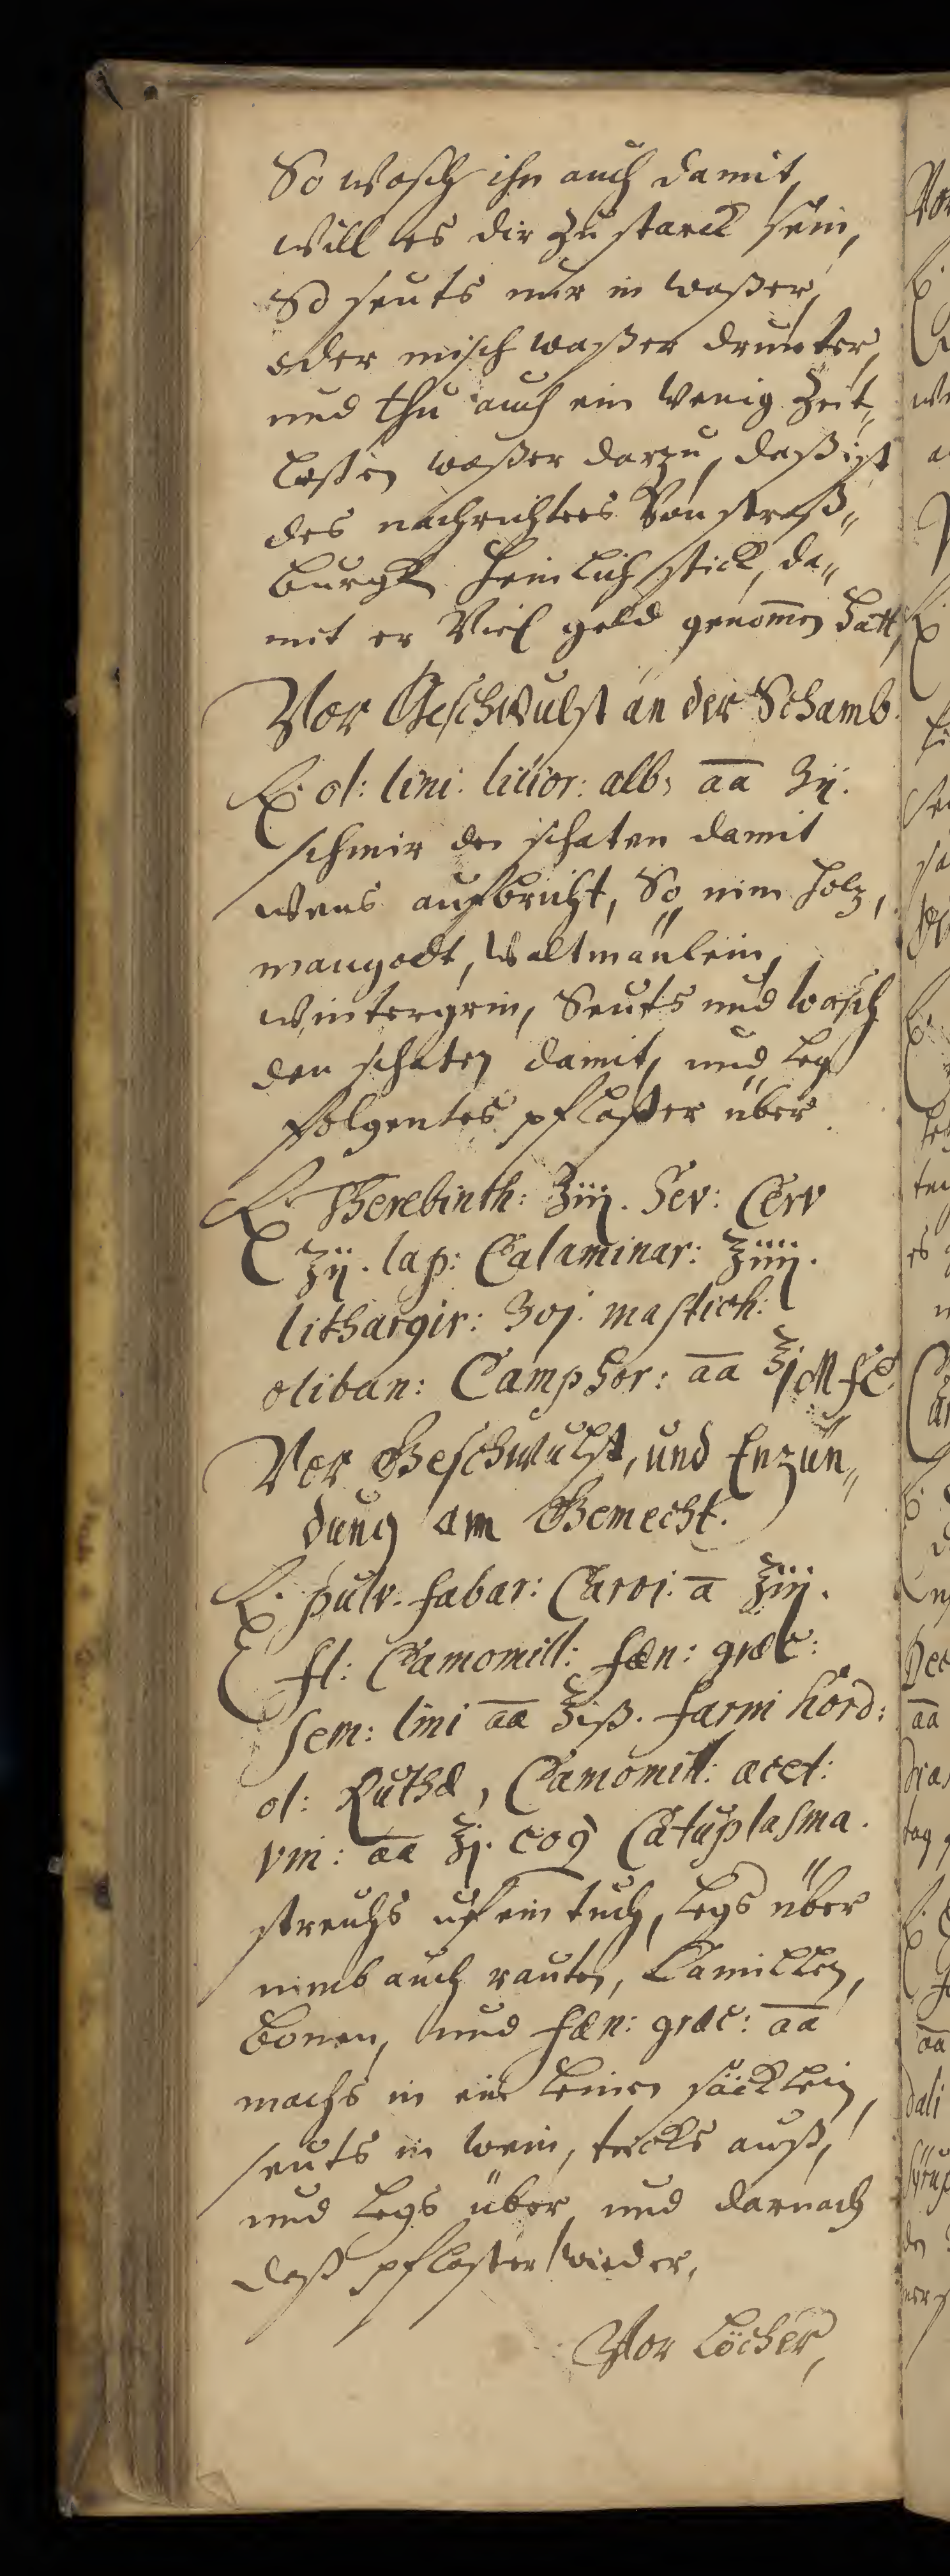 So wasch ihn auch damit,
will es dir zu starck sein,
So seuts nur in waßer,
oder misch waßer drunter,
und thu auch ein wenig Zeit„
loßen waßer darzu, daß ist
des nachrichters Von straß„
burgk heimlich stick, da„
mit er Viel geld genom̄en hatt,
Vor Geschwulst an der Schamb.
℞. ol: lini: lilior: alb: āā ℥ij.
schmir den schaten damit
wens aufbricht, So nim holz,
mangodt, waltmänlein,
wintergrin, Seuts und wasch
den schaten damit, und leg
folgentes pflaster über
℞. Therebinth: ℥iij. Sev: Cerv
℥ij. lap: Calaminar: ℥iiij.
lithargir: ℥vj. mastich:
oliban: Camphor: āā ʒj M fĈ
Vor Geschwulst, und Enzün„
dung am Gemecht.
℞. pulv. fabar: Carvi: ā ℥iij.
fl: Camomill: fæn: græc:
sem: lini āā ℥iß. farin hord:
ol: Ruthæ, Camomill: acet:
vin: āā ℥j. coq Cataplasma.
streichs uf ein tuch, legs über
nimb auch rauten, Camillen,
bonen, und fæn: græc: āā
machs in ein leinen säcklein,
seuts in wein, trcks auß,
und legs über und darnach
daß pflaster wieder,
Vor Löcher,